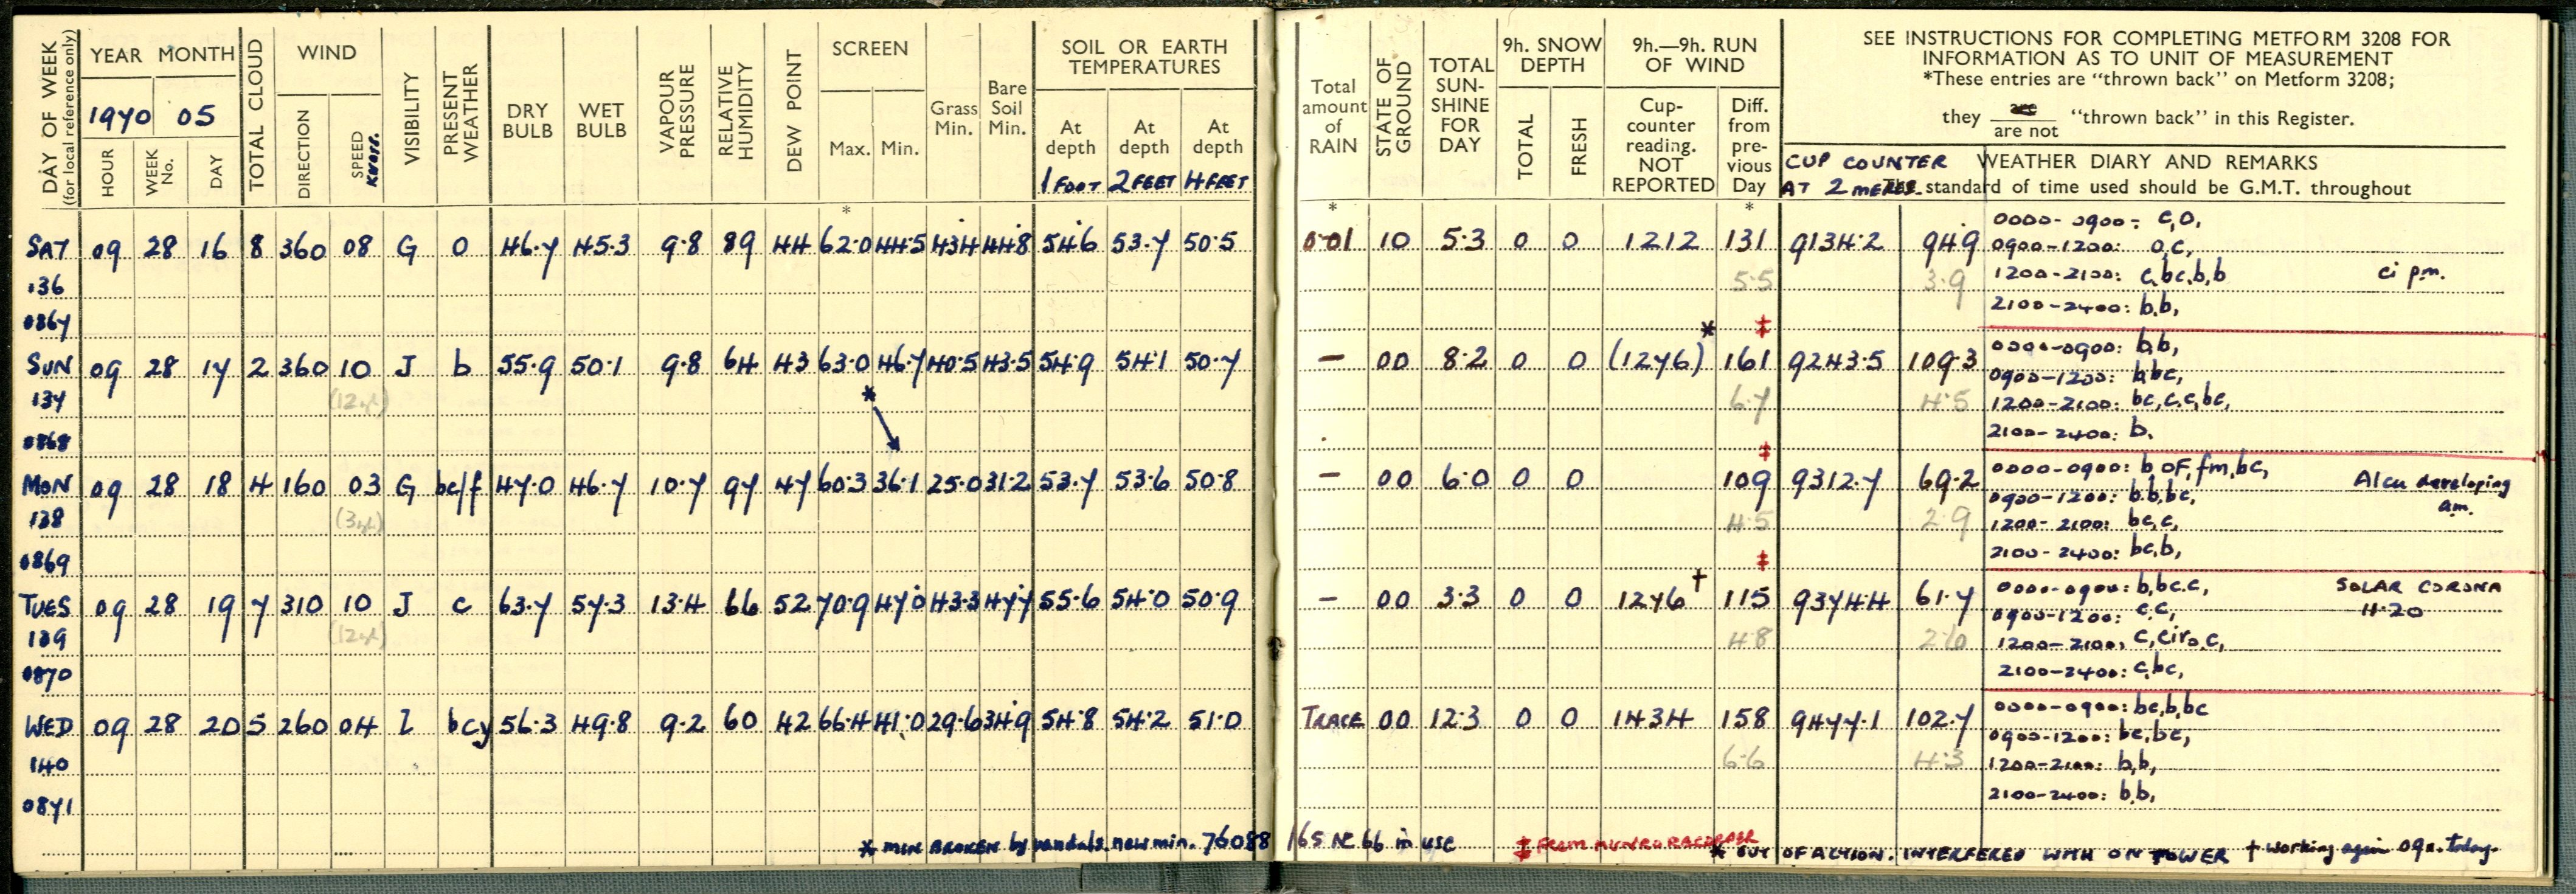 DAY OF WEEK (for local reference only) YEAR MONTH TOTAL CLOUD WIND VISIBILITY PRESENT WEATHER DRY BULB WET BULB VAPOUR PRESSURE RELATIVE HUMIDITY DEW POINT SCREEN Grass Min. Bare Soil Min. SOIL OR EARTH TEMPERATURES
1970 05
HOUR WEEK No. DAY DIRECTION SPEED KNOTS. Max. Min. At depth At depth At depth
1 FOOT 2 FEET 4 FEET
Total amount of RAIN STATE OF GROUND TOTAL SUN-SHINE FOR DAY 9h. SNOW DEPTH 9h.—9h. RUN OF WIND
TOTAL FRESH Cup-counter reading. NOT REPORTED Diff. from pre-vious Day
SEE INSTRUCTIONS FOR COMPLETING METFORM 3208 FOR
INFORMATION AS TO UNIT OF MEASUREMENT
*These entries are "thrown back" on Metform 3208;
they are / are not "thrown back" in this Register.
CUP COUNTER WEATHER DIARY AND REMARKS
AT 2 METRES. The standard of time used should be G.M.T. throughout
* * *
SAT 09 28 16 8 360 08 G O 46.7 45.3 9.8 89 44 62.0 44.5 43.4 44.8 54.6 53.7 50.5 0.01 10 5.3 0 0 1212 131 9134.2 94.9
0000-0900: c,o,
0900-1200: o,c,
136 5.5 3.9 1200-2100: c,bc,b,b ci p.m.
0867 2100-2400: b,b,
* ‡
SUN 09 28 17 2 360 10 J b 55.9 50.1 9.8 64 43 63.0 46.7 40.5 43.5 54.9 54.1 50.7 — 00 8.2 0 0 (1276) 161 9243.5 109.3
0000-0900: b,b,
0900-1200: b,bc,
137 * 6.7 4.5 1200-2100: bc,c,c,bc,
0868 2100-2400: b.
‡
MON 09 28 18 4 160 03 G bc/f 47.0 46.7 10.7 97 47 60.3 36.1 25.0 31.2 53.7 53.6 50.8 — 00 6.0 0 0 109 9312.7 69.2
0000-0900: b oF, fm, bc, Alcu developing
0900-1200: b,b,bc, am.
138 4.5 2.9 1200-2100: bc,c,
0869 2100-2400: bc,b,
‡
TUES 09 28 19 7 310 10 J c 63.7 57.3 13.4 66 52 70.9 47.0 43.3 47.7 55.6 54.0 50.9 — 00 3.3 0 0 1276 † 115 9374.4 61.7
0000-0900: b,bc,c, SOLAR CORONA
0900-1200: c,c, 11.20
139 4.8 2.6 1200-2100: c,ciro,c,
0870 2100-2400: c,bc,
WED 09 28 20 5 260 04 I bcy 56.3 49.8 9.2 60 42 66.4 41.0 29.6 34.9 54.8 54.2 51.0 TRACE 00 12.3 0 0 1434 158 9477.1 102.7
0000-0900: bc,b,bc
0900-1200: bc,bc,
140 6.6 4.3 1200-2100: b,b,
0871 2100-2400: b,b,
* MIN BROKEN by vandals. new min. 76088 165 NE 66 in use ‡ FROM MUNRO RECORDER * OUT OF ACTION. INTERFERED WITH ON TOWER † working again 09h. today.